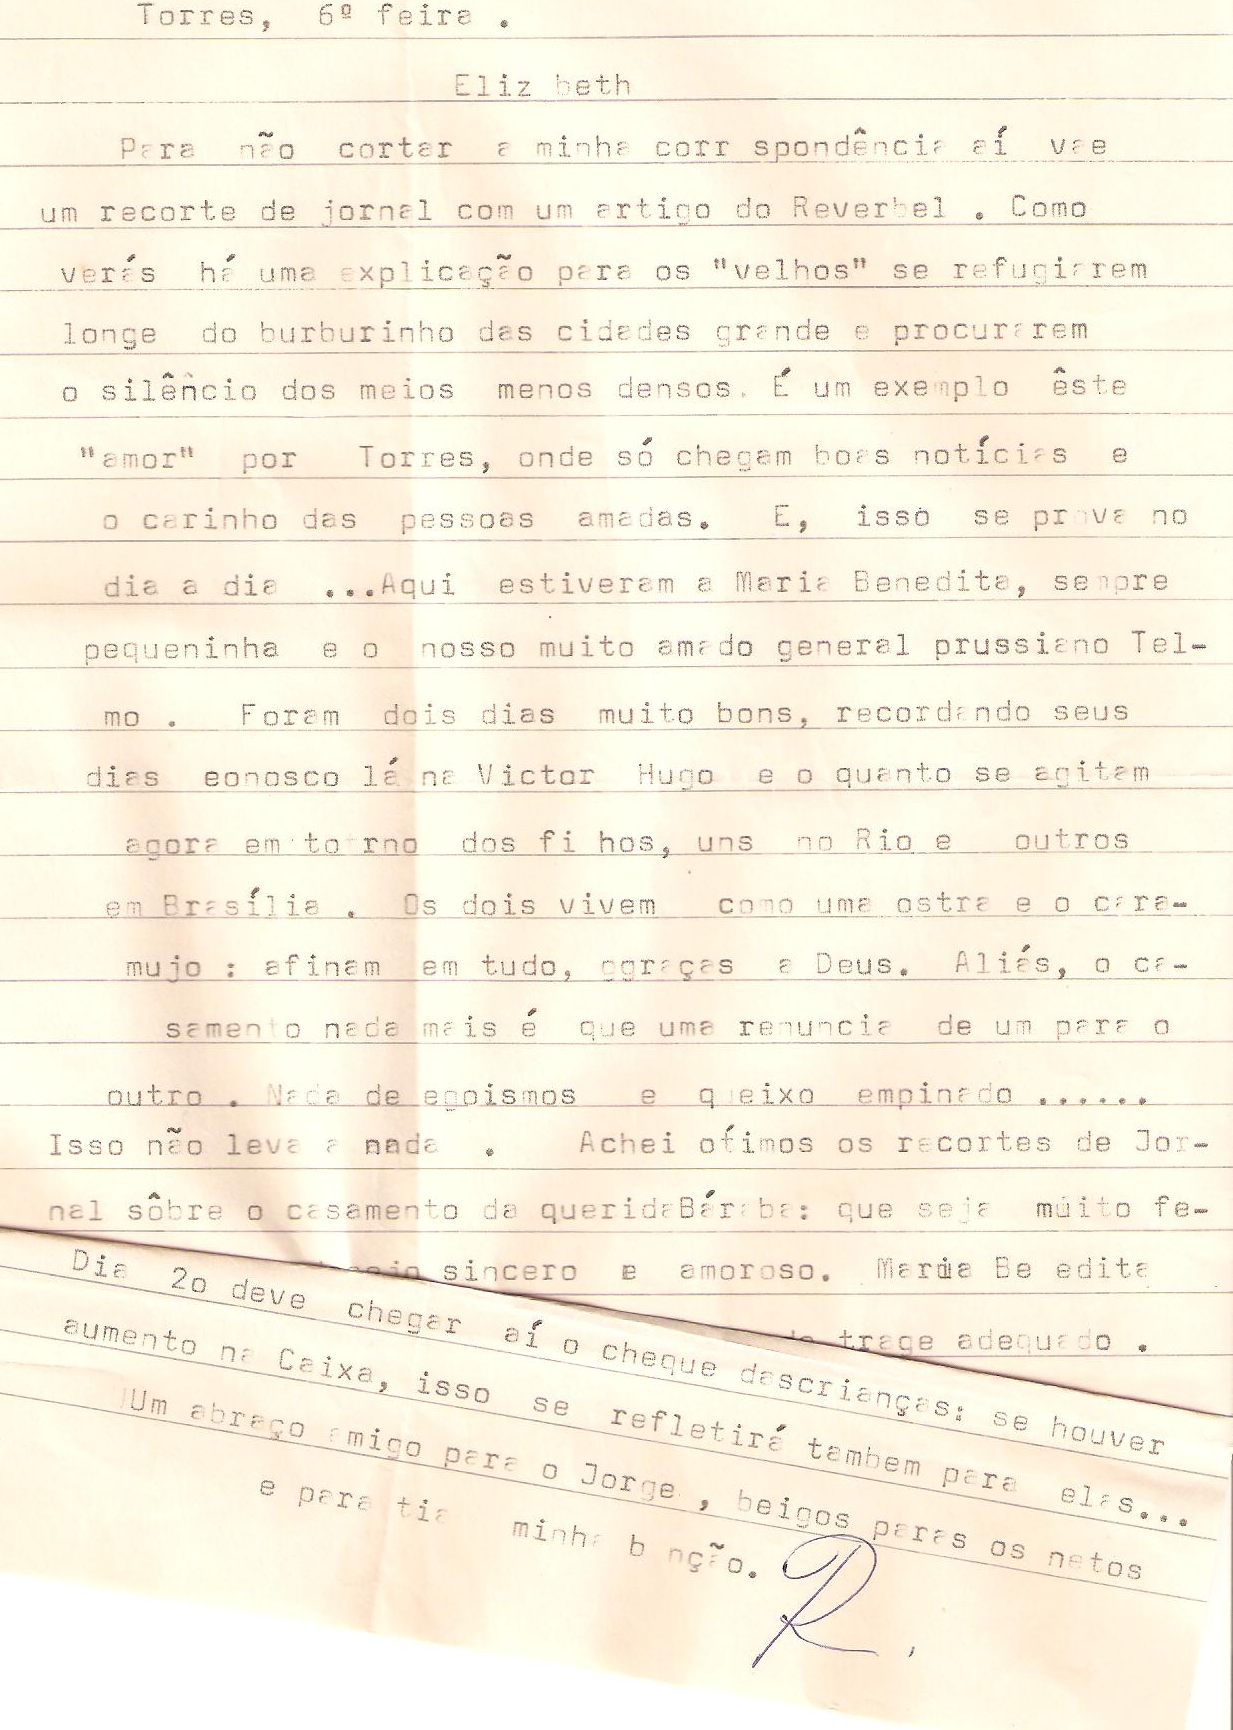 Torres, 6º feira .
Eliz beth
Para não cortar a minha corr spondência aí vae
um recorte de jornal com um artigo do Reverbel . Como
verás há uma explicação para os "velhos" se refugiarem
longe do burburinho das cidades grande e procurarem
o silêncio dos meios menos densos. É um exemplo êste
"amor" por Torres, onde só chegam boas notícias e
o carinho das pessoas amadas. E, isso se prova no
dia a dia ...Aqui estiveram a Maria Benedita, sempre
pequeninha e o nosso muito amado general prussiano Tel-
mo . Foram dois dias muito bons, recordando seus
dias eonosco lá na Victor Hugo e o quanto se agitam
agora em to rno dos fi hos, uns no Rio e outros
em Brasília . Os dois vivem como uma ostra e o cara-
mujo : afinam em tudo, ggraças a Deus. Aliás, o ca-
samento nada mais é que uma renuncia de um para o
outro . Nada de egoismos e queixo empinado ......
Isso não leva a nada . Achei otimos os recortes de Jor-
nal sôbre o casamento da queridaBáraba: que seja muito fe-
sincero e amoroso. Maria Be edita
trage adequado .
Dia 2o deve chegar aí o cheque dascrianças: se houver
aumento na Caixa, isso se refletirá tambem para elas...
Um abraço amigo para o Jorge , beigos paras os netos
e para tia minha b nção.
R.